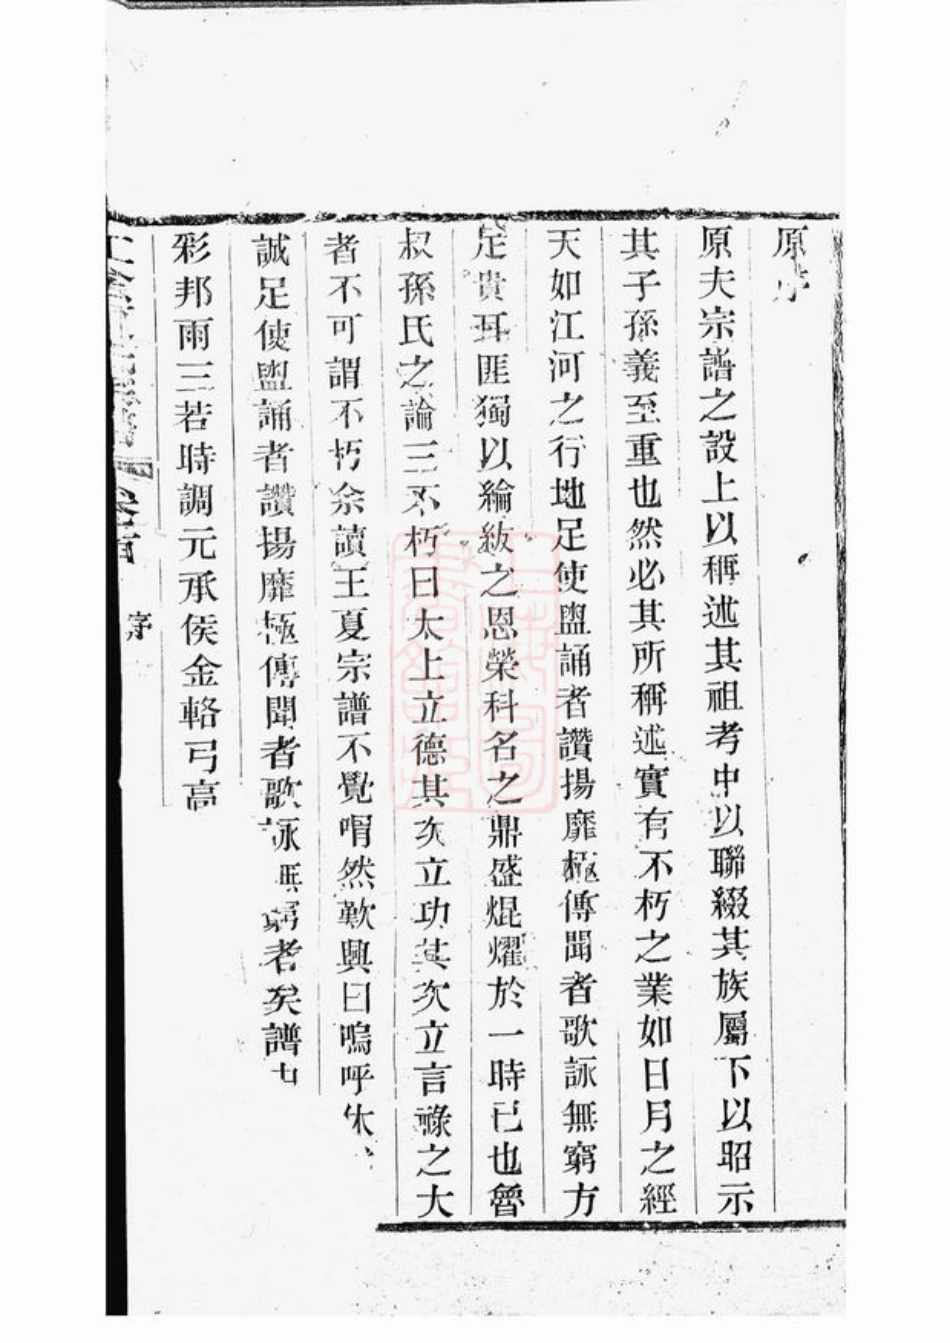 原序
原夫宗譜之設上以稱述其祖考中以聯綴其族屬下以昭示
其子孫義至重也然必其所稱述實有不朽之業如日月之經
天如江河之行地足使盥誦者讚揚靡極傳聞者歌詠無窮方
足貴耳匪獨以綸紱之恩榮科名之鼎盛焜燿於一時已也魯
叔孫氏之論三不朽曰太上立德其次立功其次立言祿之大
者不可謂不朽余讀王夏宗譜不覺喟然歎興曰嗚呼休
誠足使盥誦者讚揚靡極傳聞者歌詠無窮者矣譜
彩邦雨三若時調元承侯金輅弓高
卷首
序